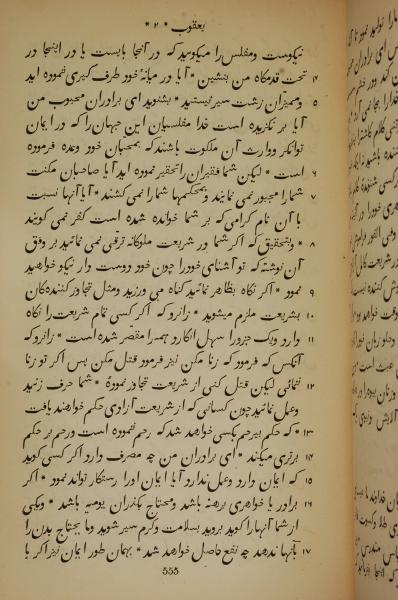 یعقوب * ۲ *
نیکوست ومفلس را میکوئید که در آنجا بایست یا در اینجا در
۴ تحت قدمکاه من بنشین * آیا در میانهٔ خود طرف کیری ننموده اید
۵ وممیزان زشت سیر نیستید * بشنوید ای برادران محبوب من
آیا بر نکزیده است خدا مفلسان این جهان را که در ایمان
توانکر ووارث آن ملکوت باشند که بمحبان خود وعده فرموده
۶ است * لیکن شما فقیران را تحقیر نموده اید آیا صاحبان مکنت
۷ شما را مجبور نمی نمایند وبمحکمها شما را نمی کشند * آیا آنها نسبت
با آن نام کرامی که بر شما خوانده شده است کفر نمی کویند
۸ * وبتحقیق که اکر شما در شریعت ملوکانه ترقی می نمائید بر وفق
آن نوشته که تو آشنای خود را چون خود دوست دار نیکو خواهید
۹ نمود * اکر نکاه بظاهر نمائید کناه می ورزید ومثل تجاوز کننده کان
۱۰ بشریعت ملزم میشوید * زانرو که اکر کسی تمام شریعت را نکاه
۱۱ دارد ویک جزو را سهل انکارد همه را مقصر شده است * زانرو که
آنکس که فرمود که زنا مکن نیز فرمود قتل مکن پس اکر تو زنا
۱۲ ننمائی لیکن قتل کنی از شریعت تجاوز نمودهٔ * شما حرف زنید
وعمل نمائید چون کسانی که از شریعت آزادی حکم خواهند یافت
۱۳ * که حکم بیرحم بکسی خواهد شد که رحم ننموده است ورحم بر حکم
۱۴ برتری میکند * ای برادران من چه مصرف دارد اکر کسی کوید
۱۵ که ایمان دارد وعمل ندارد آیا ایمان اورا رستکار تواند نمود * اکر
۱۶ برادر یا خواهری برهنه باشد ومحتاج بکذران یومیه باشد * ویکی
از شما آنها را کوید بروید بسلامت وکرم سیر شوید وما یحتاج بدن را
۱۷ بآنها ندهد چه نفع حاصل خواهد شد * بهمان طور ایمان نیز اکر با
۵۵۵